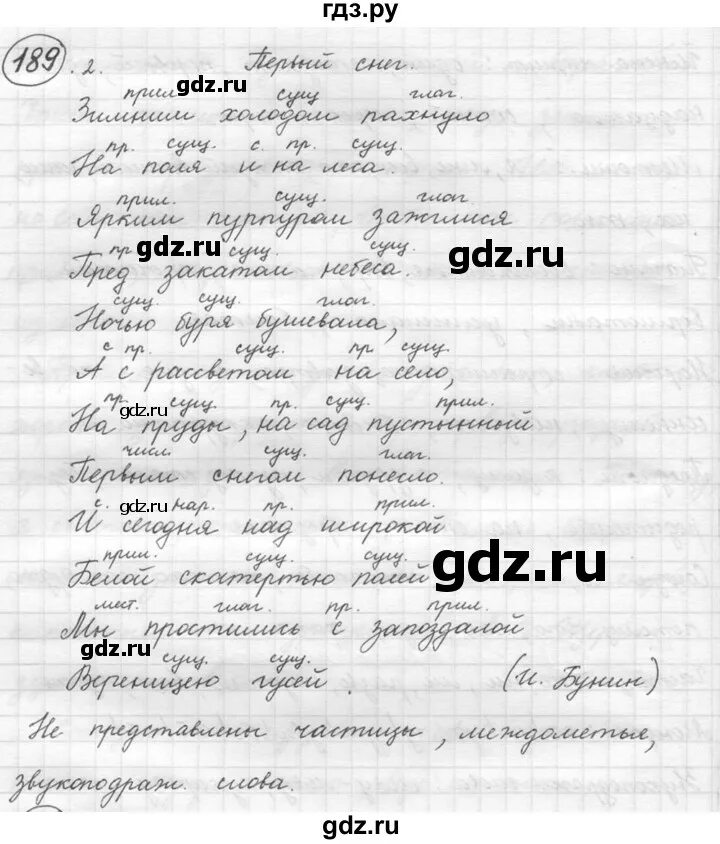 гдз.ру
189. 2. Первый снег.
прил. сущ глаг.
Зимним холодом пахнуло
пр. сущ. с. пр. сущ.
На поля и на леса.
прил. сущ. глаг.
Ярким пурпуром зажглися
пр сущ. сущ.
Пред закатом небеса.
gdz.ru
gdz.ru
сущ. сущ. глаг.
Ночью буря бушевала,
с пр. сущ. пр сущ.
А с рассветом на село,
пр. сущ. пр. сущ. прил.
gdz.ru
На пруды, на сад пустынный
числ. сущ. глаг.
Первым снегом понесло.
с. нар. пр. прил.
gdz.ru
И сегодня над широкой
прил. сущ. сущ.
Белой скатертью полей
gdz.ru
мест. глаг. пр. прил.
Мы простились с запоздалой
gdz.ru
сущ. сущ.
Вереницею гусей. (И. Бунин)
Не представлены частицы, междометья,
звукоподраж. слова.
gdz.ru